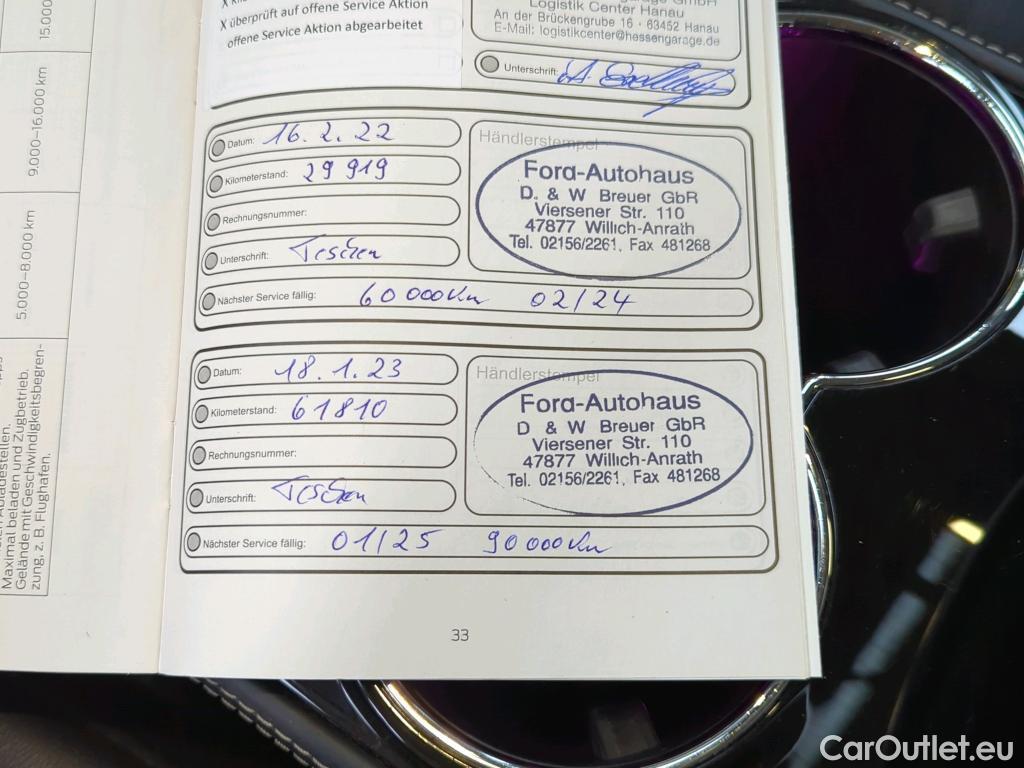 15.000
9.000–16.000 km
5.000–8.000 km
Maximal beladen und Zugbetrieb.
Gelände mit Geschwindigkeitsbegren-
zung, z. B. Flughafen.
X überprüft auf offene Service Aktion
offene Service Aktion abgearbeitet
Logistik Center Hanau
An der Brückengrube 16 · 63452 Hanau
E-Mail: logistikcenter@hessengarage.de
Unterschrift:
Datum: 16.2.22
Kilometerstand: 29 919
Rechnungsnummer:
Unterschrift:
Nächster Service fällig: 60 000 Km 02/24
Händlerstempel
Ford-Autohaus
D. & W Breuer GbR
Viersener Str. 110
47877 Willich-Anrath
Tel. 02156/2261, Fax 481268
Datum: 18.1.23
Kilometerstand: 61810
Rechnungsnummer:
Unterschrift:
Nächster Service fällig: 01/25 90 000 Km
Händlerstempel
Ford-Autohaus
D & W Breuer GbR
Viersener Str. 110
47877 Willich-Anrath
Tel. 02156/2261, Fax 481268
33
CarOutlet.eu